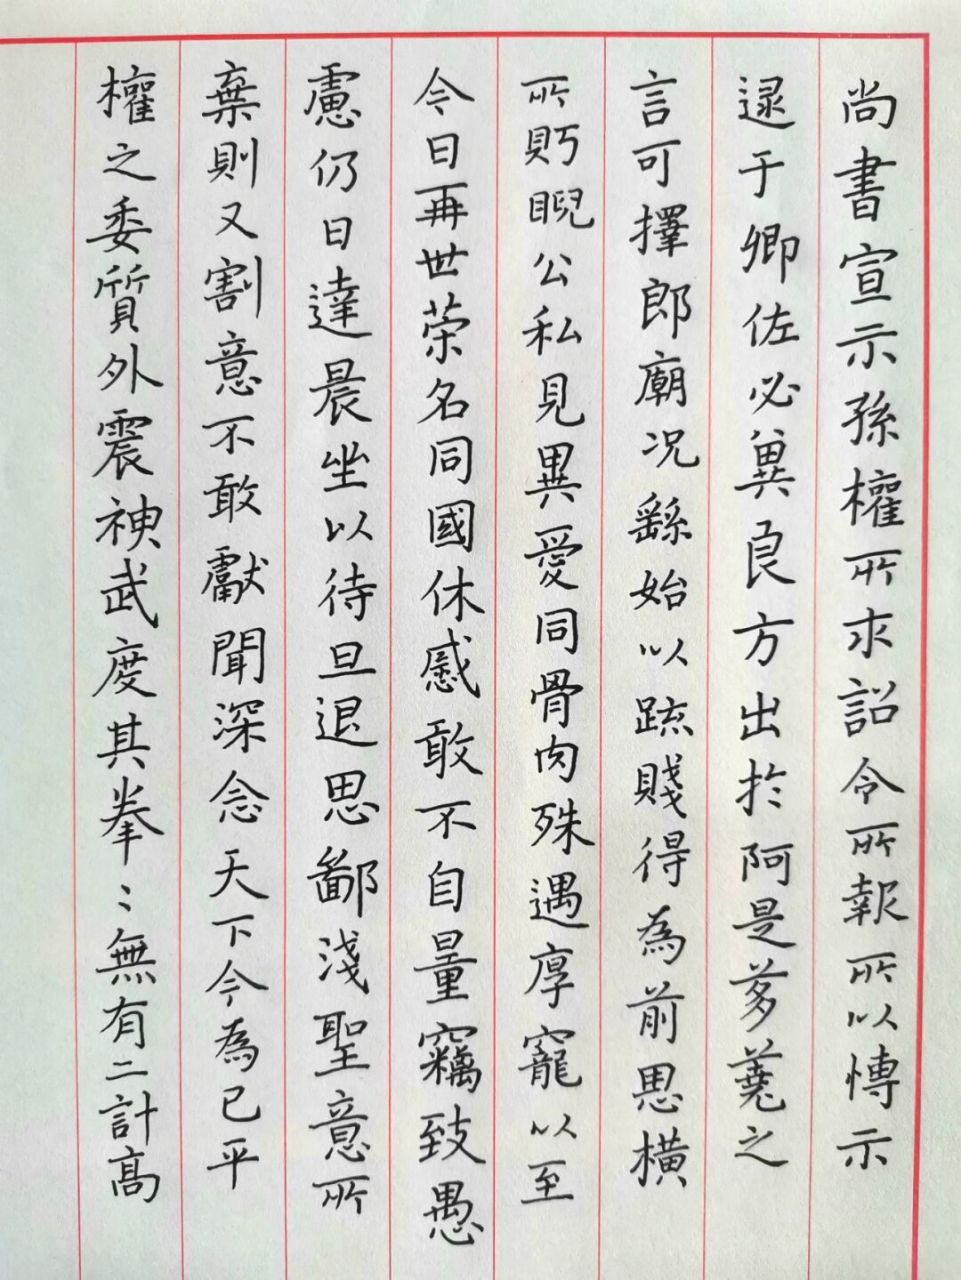 尚書宣示孫權所求詔令所報所以博示
逮于卿佐必冀良方出於阿是芻蕘之
言可擇郎廟況繇始以疏賤得為前恩橫
所眄睨公私見異愛同骨肉殊遇厚寵以至
今日再世荣名同國休慼敢不自量竊致愚
慮仍日達晨坐以待旦退思鄙淺聖意所
棄則又割意不敢獻聞深念天下今為已平
權之委質外震神武度其拳〻無有二計高